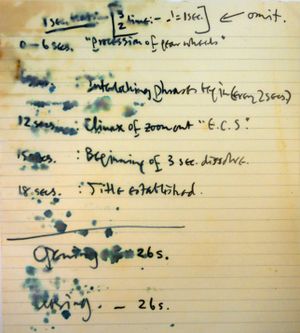 1 sec. [3/2 time :- . = 1 sec.] ← omit.
0 – 6 secs. "procession of gear wheels"
: Interlocking phrases begin (every 2 secs.)
12 secs : Climax of zoom out "E.C.S"
15 secs. : Beginning of 3 sec. dissolve.
18 secs. : Title established.
26s.
– 26s.